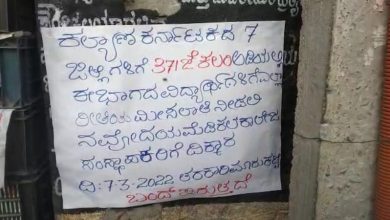 ಕಲ್ಯಾಣ ಕರ್ನಾಟಕದ 7
ಜಿಲ್ಲೆಗಳಿಗೆ 371ಜೆ ಕಲಂ ಅಡಿಯಲ್ಲಿ
ಈ ಭಾಗದ ವಿದ್ಯಾರ್ಥಿಗಳಿಗೆ ಎಲ್ಲಾ
ರೀತಿಯ ಮೀಸಲಾತಿ ನೀಡಲಿ
ನವೋದಯ ಮೆಡಿಕಲ್ ಕಾಲೇಜ
ಸಂಸ್ಥಾಪಕರಿಗೆ ದಿಕ್ಕಾರ
ದಿ: 7-3-2022 ತರಕಾರಿ ಮಾರುಕಟ್ಟೆ
ಬಂದ್